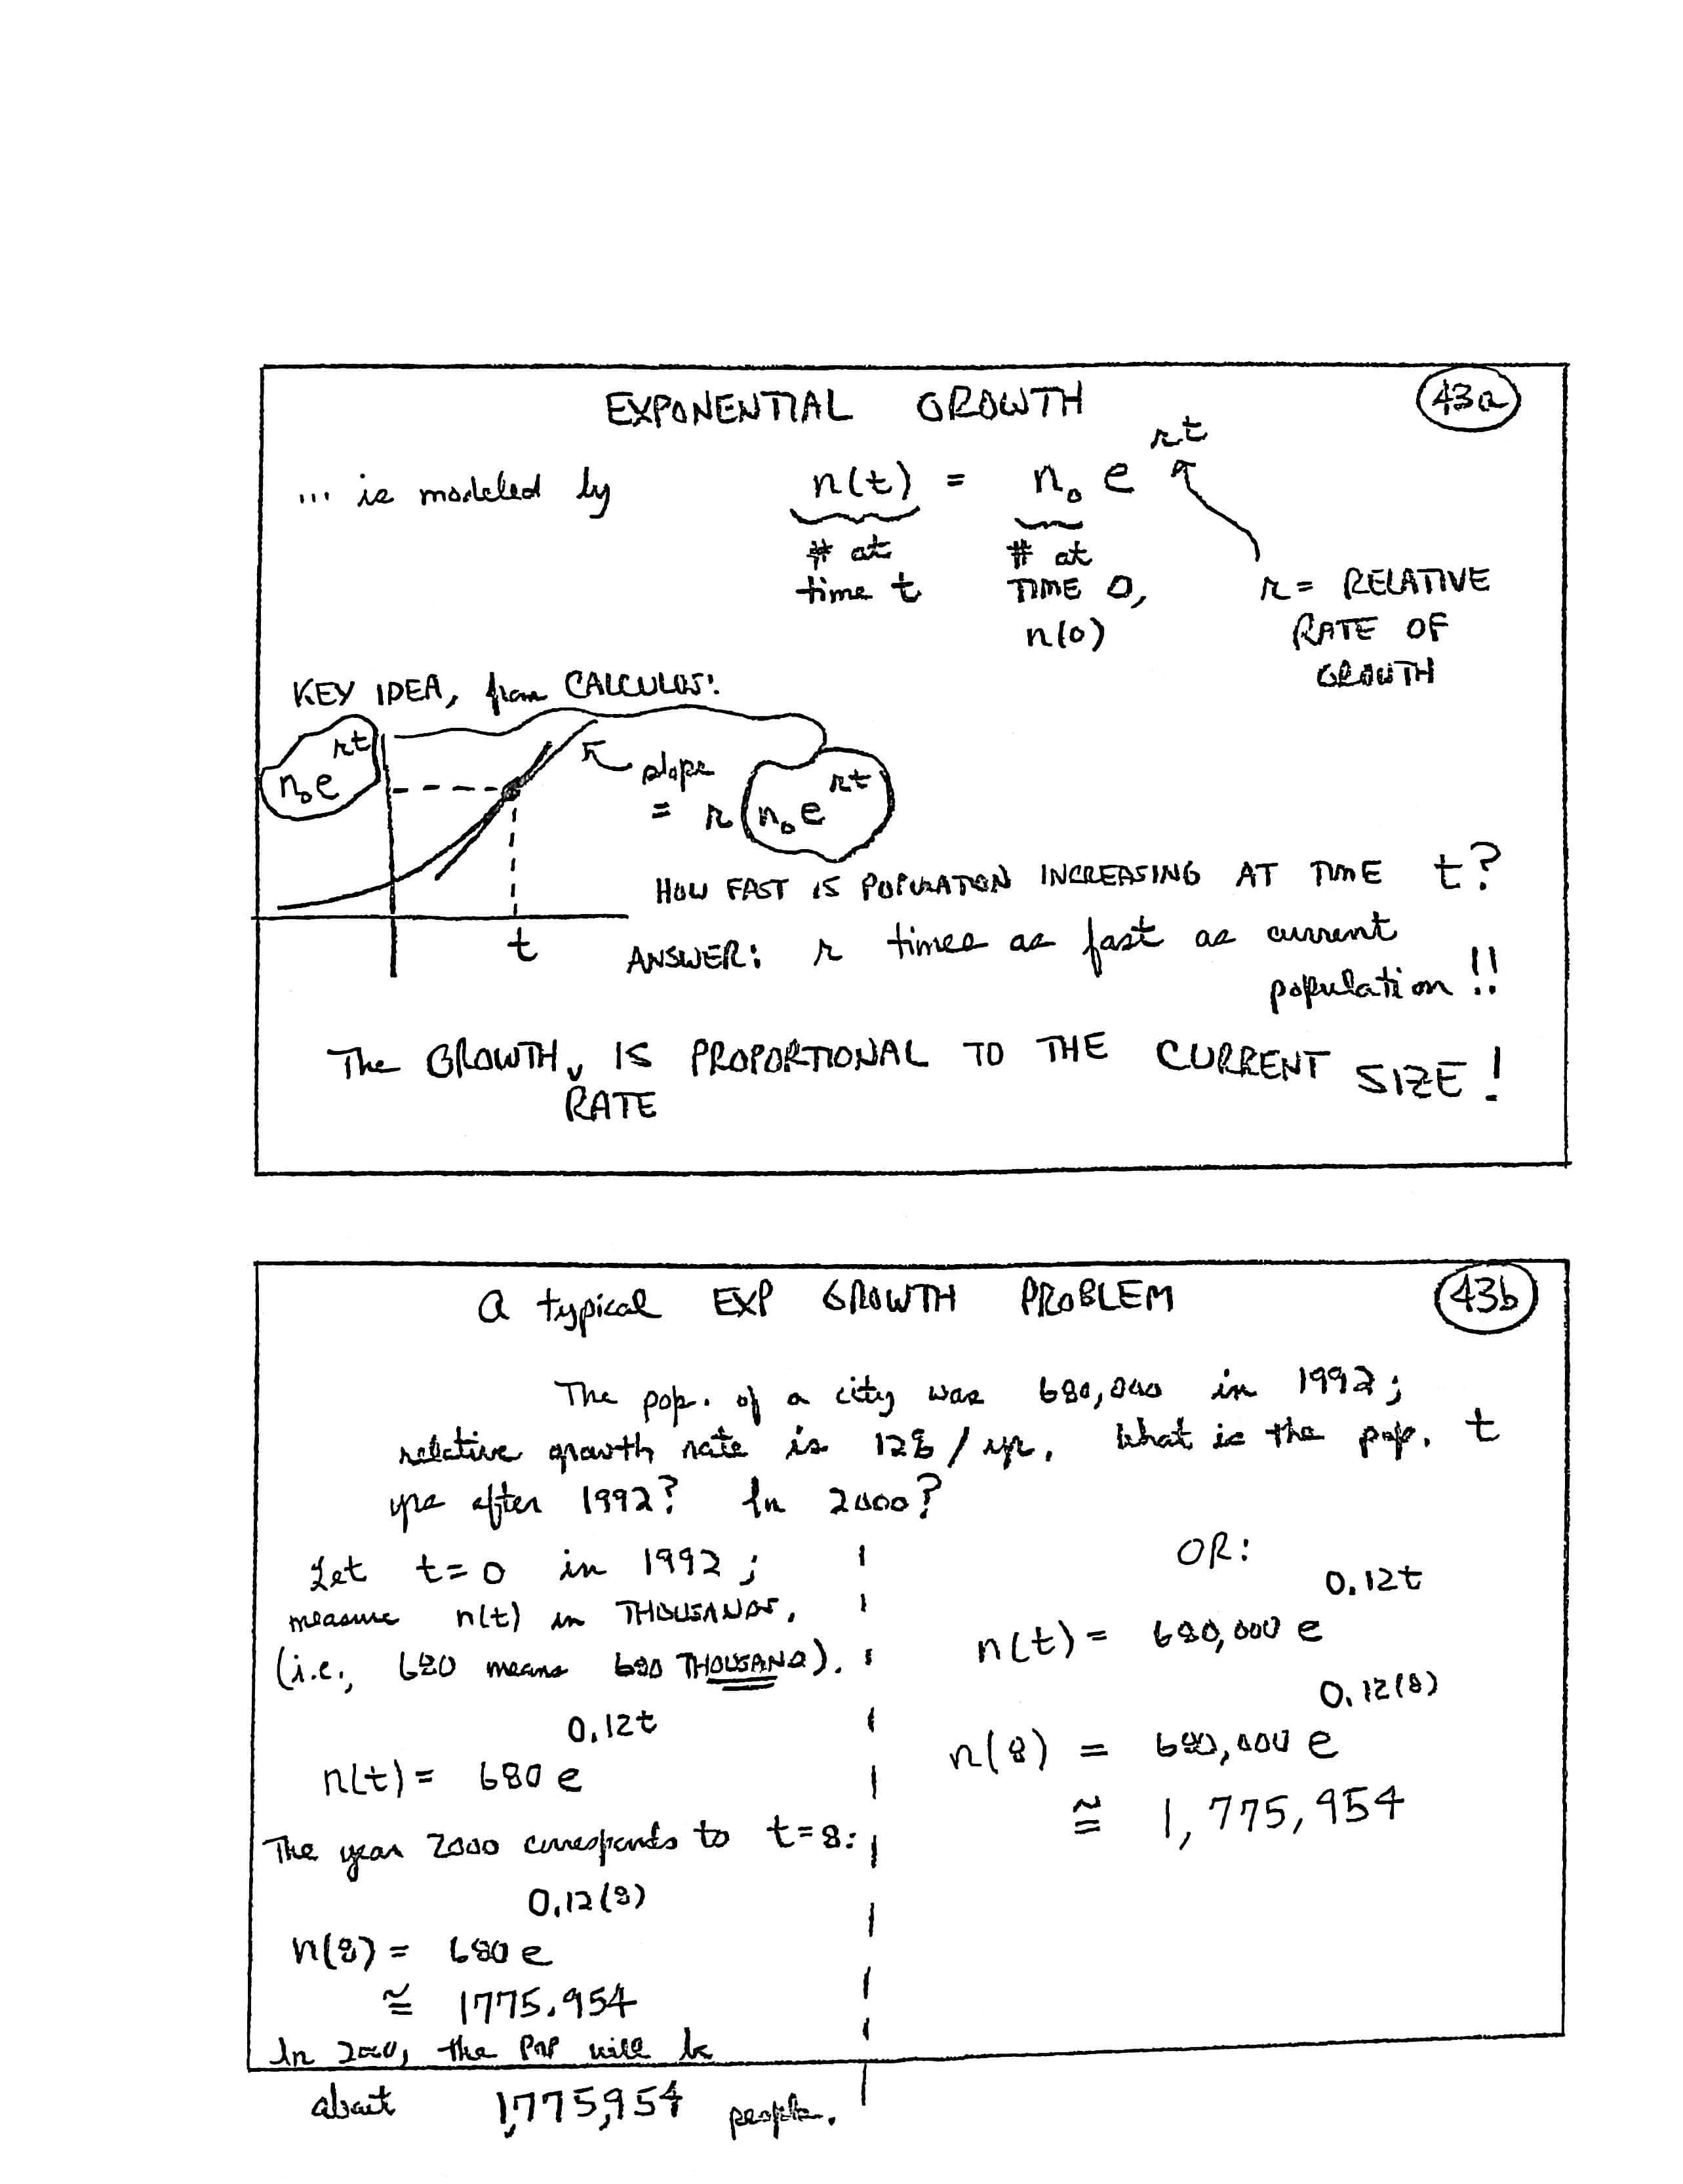 EXPONENTIAL GROWTH
43a
... is modeled by n(t) = n₀ e^rt
# at time t
# at TIME 0, n(0)
r = RELATIVE RATE OF GROWTH
KEY IDEA, from CALCULUS:
n₀e^rt
slope = r n₀e^rt
t
HOW FAST IS POPULATION INCREASING AT TIME t?
ANSWER: r times as fast as current
population !!
The GROWTH RATE IS PROPORTIONAL TO THE CURRENT SIZE!
A typical EXP GROWTH PROBLEM
43b
The pop. of a city was 680,000 in 1992;
relative growth rate is 12% / yr. What is the pop. t
yrs after 1992? In 2000?
Let t=0 in 1992;
measure n(t) in THOUSANDS.
(i.e., 680 means 680 THOUSAND).
n(t) = 680 e^0.12t
The year 2000 corresponds to t=8:
n(8) = 680 e^0.12(8)
≅ 1775.954
In 2000, the POP will be
about 1,775,954 people.
OR:
n(t) = 680,000 e^0.12t
n(8) = 680,000 e^0.12(8)
≅ 1,775,954